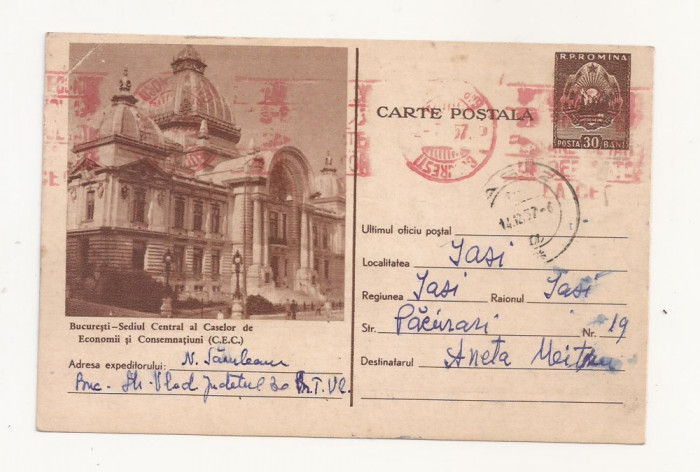 CARTE POSTALA
R.P.ROMINA
POSTA 30 BANI
14.12.57-6
Ultimul oficiu poștal
Localitatea Iasi
Regiunea Iasi Raionul Iasi
Str. Păcurari Nr. 19
Destinatarul Aneta
București—Sediul Central al Caselor de
Economii și Consemnațiuni (C.E.C.)
Adresa expeditorului: N.
Buc. Str. Vlad Județul